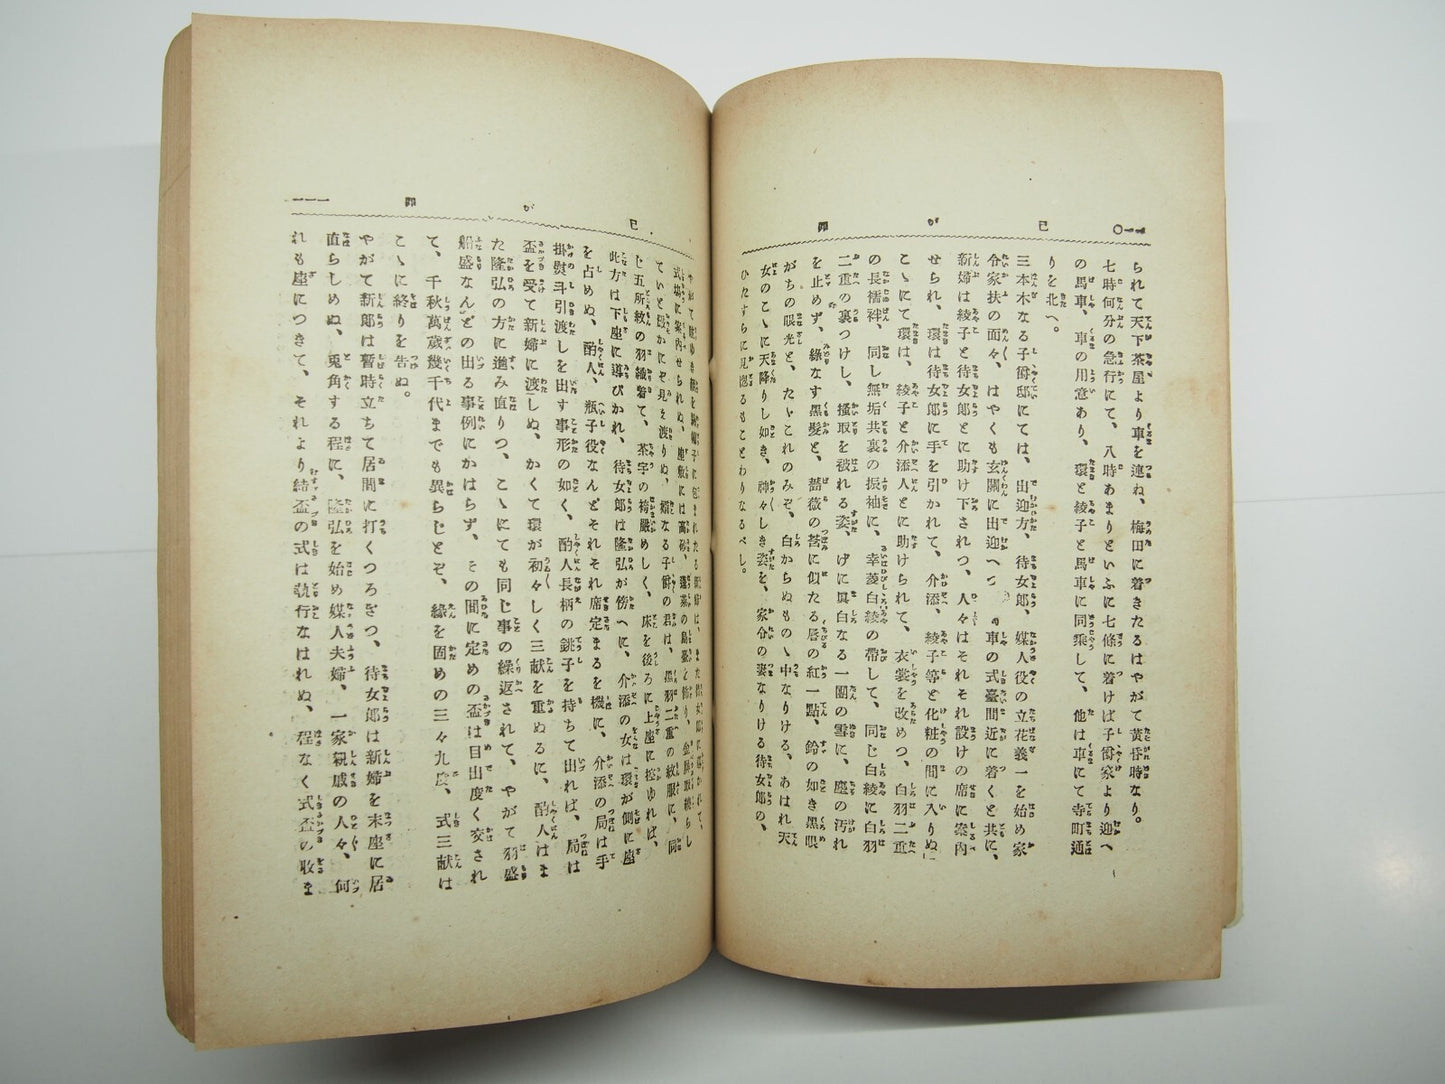 一一〇
己が罪
られて天下茶屋より車を連ね、梅田に着きたるはやがて黄昏時なり。
七時何分の急行にて、八時あまりといふに七條に着けば子爵家より迎へ
の馬車、車の用意あり、環と綾子と馬車に同乗して、他は車にて寺町通
りを北へ。
三本木なる子爵邸にては、出迎方、待女郎、媒人役の立花義一を始め家
令家扶の面々、はやくも玄關に出迎へつ、車の式臺間近に着くと共に、
新婦は綾子と待女郎とに助け下されつ、人々はそれぞれ設けの席に案内
せられ、環は待女郎に手を引かれて、介添、綾子等と化粧の間に入りぬ
こゝにて環は、綾子と介添人とに助けられて、衣裳を改めつ、白羽二重
の長襦袢、同じ無垢共裏の振袖に、幸菱白綾の帶して、同じ白綾に白羽
二重の裏つけし、搔取を被れる姿、げに眞白なる一團の雪に、塵の汚れ
を止めず、綠なす黑髮と、薔薇の莟に似たる唇の紅一點、鈴の如き黑眼
がちの眼光と、たゞこれのみぞ、白からぬものゝ中なりける、あはれ天
女のこゝに天降りし如き、神々しき姿を、家分の妻なりける待女郎の、
ひたすらに見惚るもことわりなるべし。
一一一
己が罪
式塲に案内せられぬ、座敷には高砂、蓬萊の島臺を飾り、金屛取繞らし
ていと嚴かにぞ見え渡りぬ、婿なる子爵の君は、黑羽二重の紋服に、同
じ五所紋の羽織着て、茶字の袴嚴めしく、床を後ろに上座に控ゆれば、
此方は下座に導びかれ、待女郎は隆弘が傍へに、介添の女は環が側に座
を占めぬ、酌人、瓶子役なんどそれぞれ席定まるを機に、介添の局は手
掛熨斗引渡しを出す事形の如く、酌人長柄の銚子を持ちて出れば、局は
盃を受て新婦に渡しぬ、かくて環が初々しく三献を重ぬるに、酌人はま
た隆弘の方に進み直りつ、こゝにても同じ事の繰返されて、やがて羽盛
船盛なんどの出る事例にかはらず、その間に定めの盃は目出度く交され
て、千秋萬歲幾千代までも異らじとぞ、緣を固めの三々九度、式三献は
こゝに終りを告ぬ。
やがて新郎は暫時立ちて居間に打くつろぎつ、待女郎は新婦を末座に居
直らしめぬ、兎角する程に、隆弘を始め媒人夫婦、一家親戚の人々、何
れも座につきて、それより結盃の式は執行なはれぬ、程なく式盃の收ま